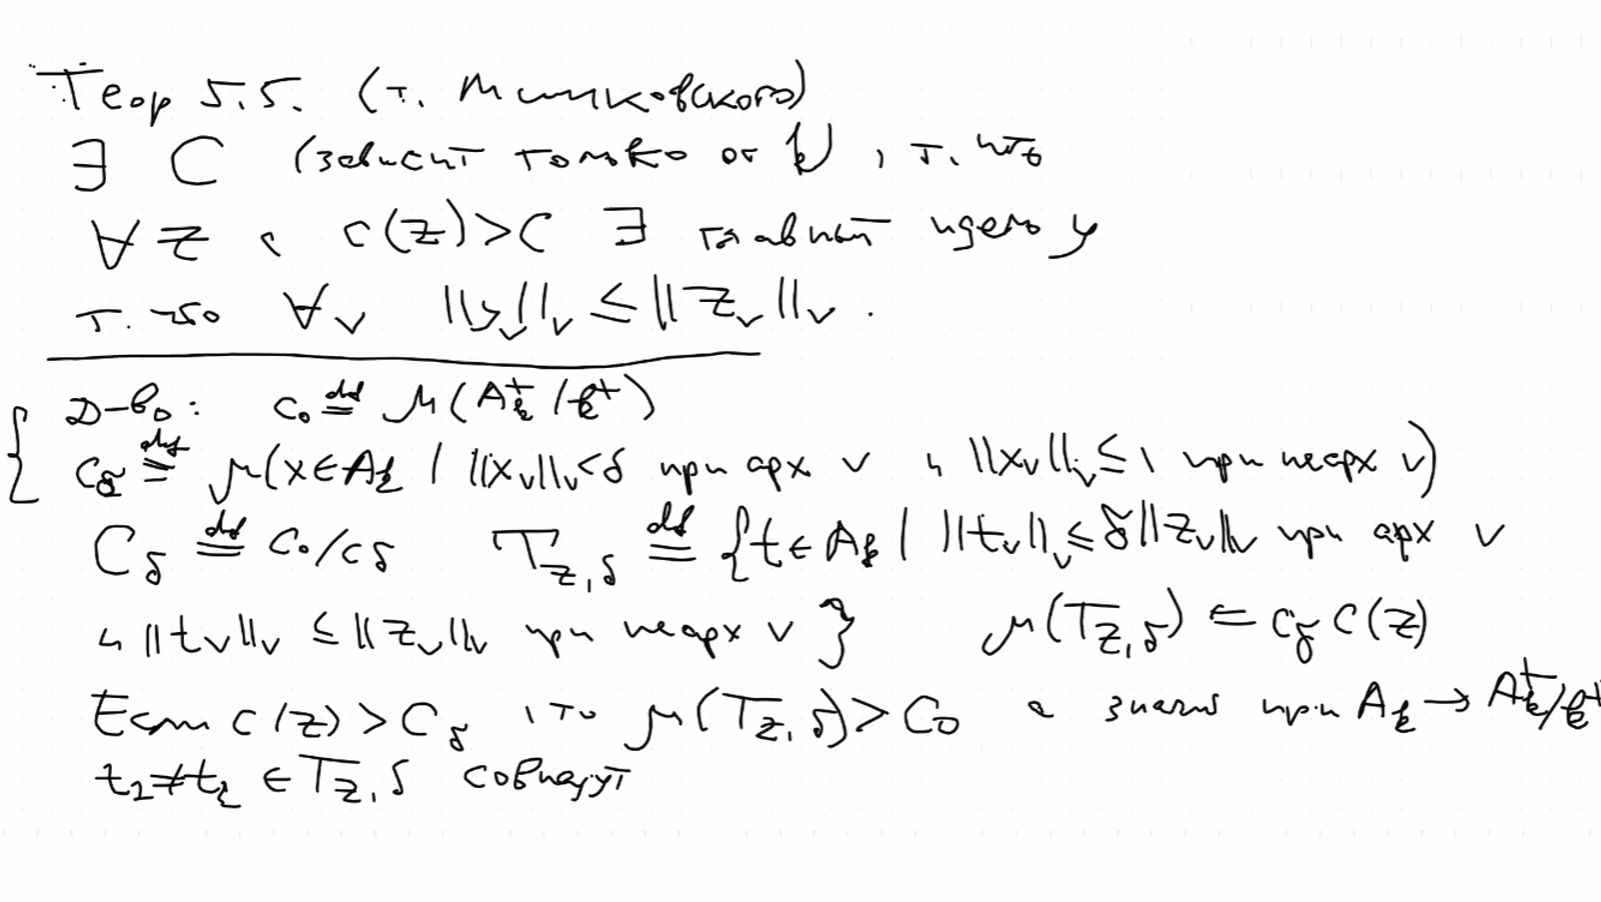 Теор 5.5. (т. Минковского)
∃ C (зависит только от k), т. что
∀ z с c(z)>C ∃ главный идель y
т. что ∀v ||y_v||_v ≤ ||z_v||_v.
Д-во: c_0 ≝ μ(A_k^+/k^+)
c_δ ≝ μ(x∈A_k | ||x_v||_v<δ при арх v и ||x_v||_v ≤ 1 при неарх v)
C_δ ≝ c_0/c_δ T_{z,δ} ≝ {t∈A_k | ||t_v||_v ≤ δ||z_v||_v при арх v
и ||t_v||_v ≤ ||z_v||_v при неарх v} μ(T_{z,δ}) = c_δ c(z)
Если c(z)>C_δ, то μ(T_{z,δ})>c_0 а значит при A_k → A_k^+/k^+
t_1≠t_2 ∈ T_{z,δ} совпадут